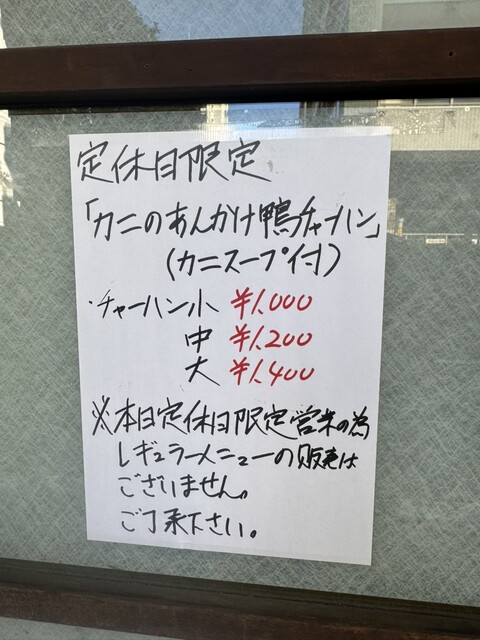 定休日限定
「カニのあんかけ鴨チャーハン」
(カニスープ付)
・チャーハン小 ¥1,000
中 ¥1,200
大 ¥1,400
※本日定休日限定営業の為
レギュラーメニューの販売は
ございません。
ご了承下さい。